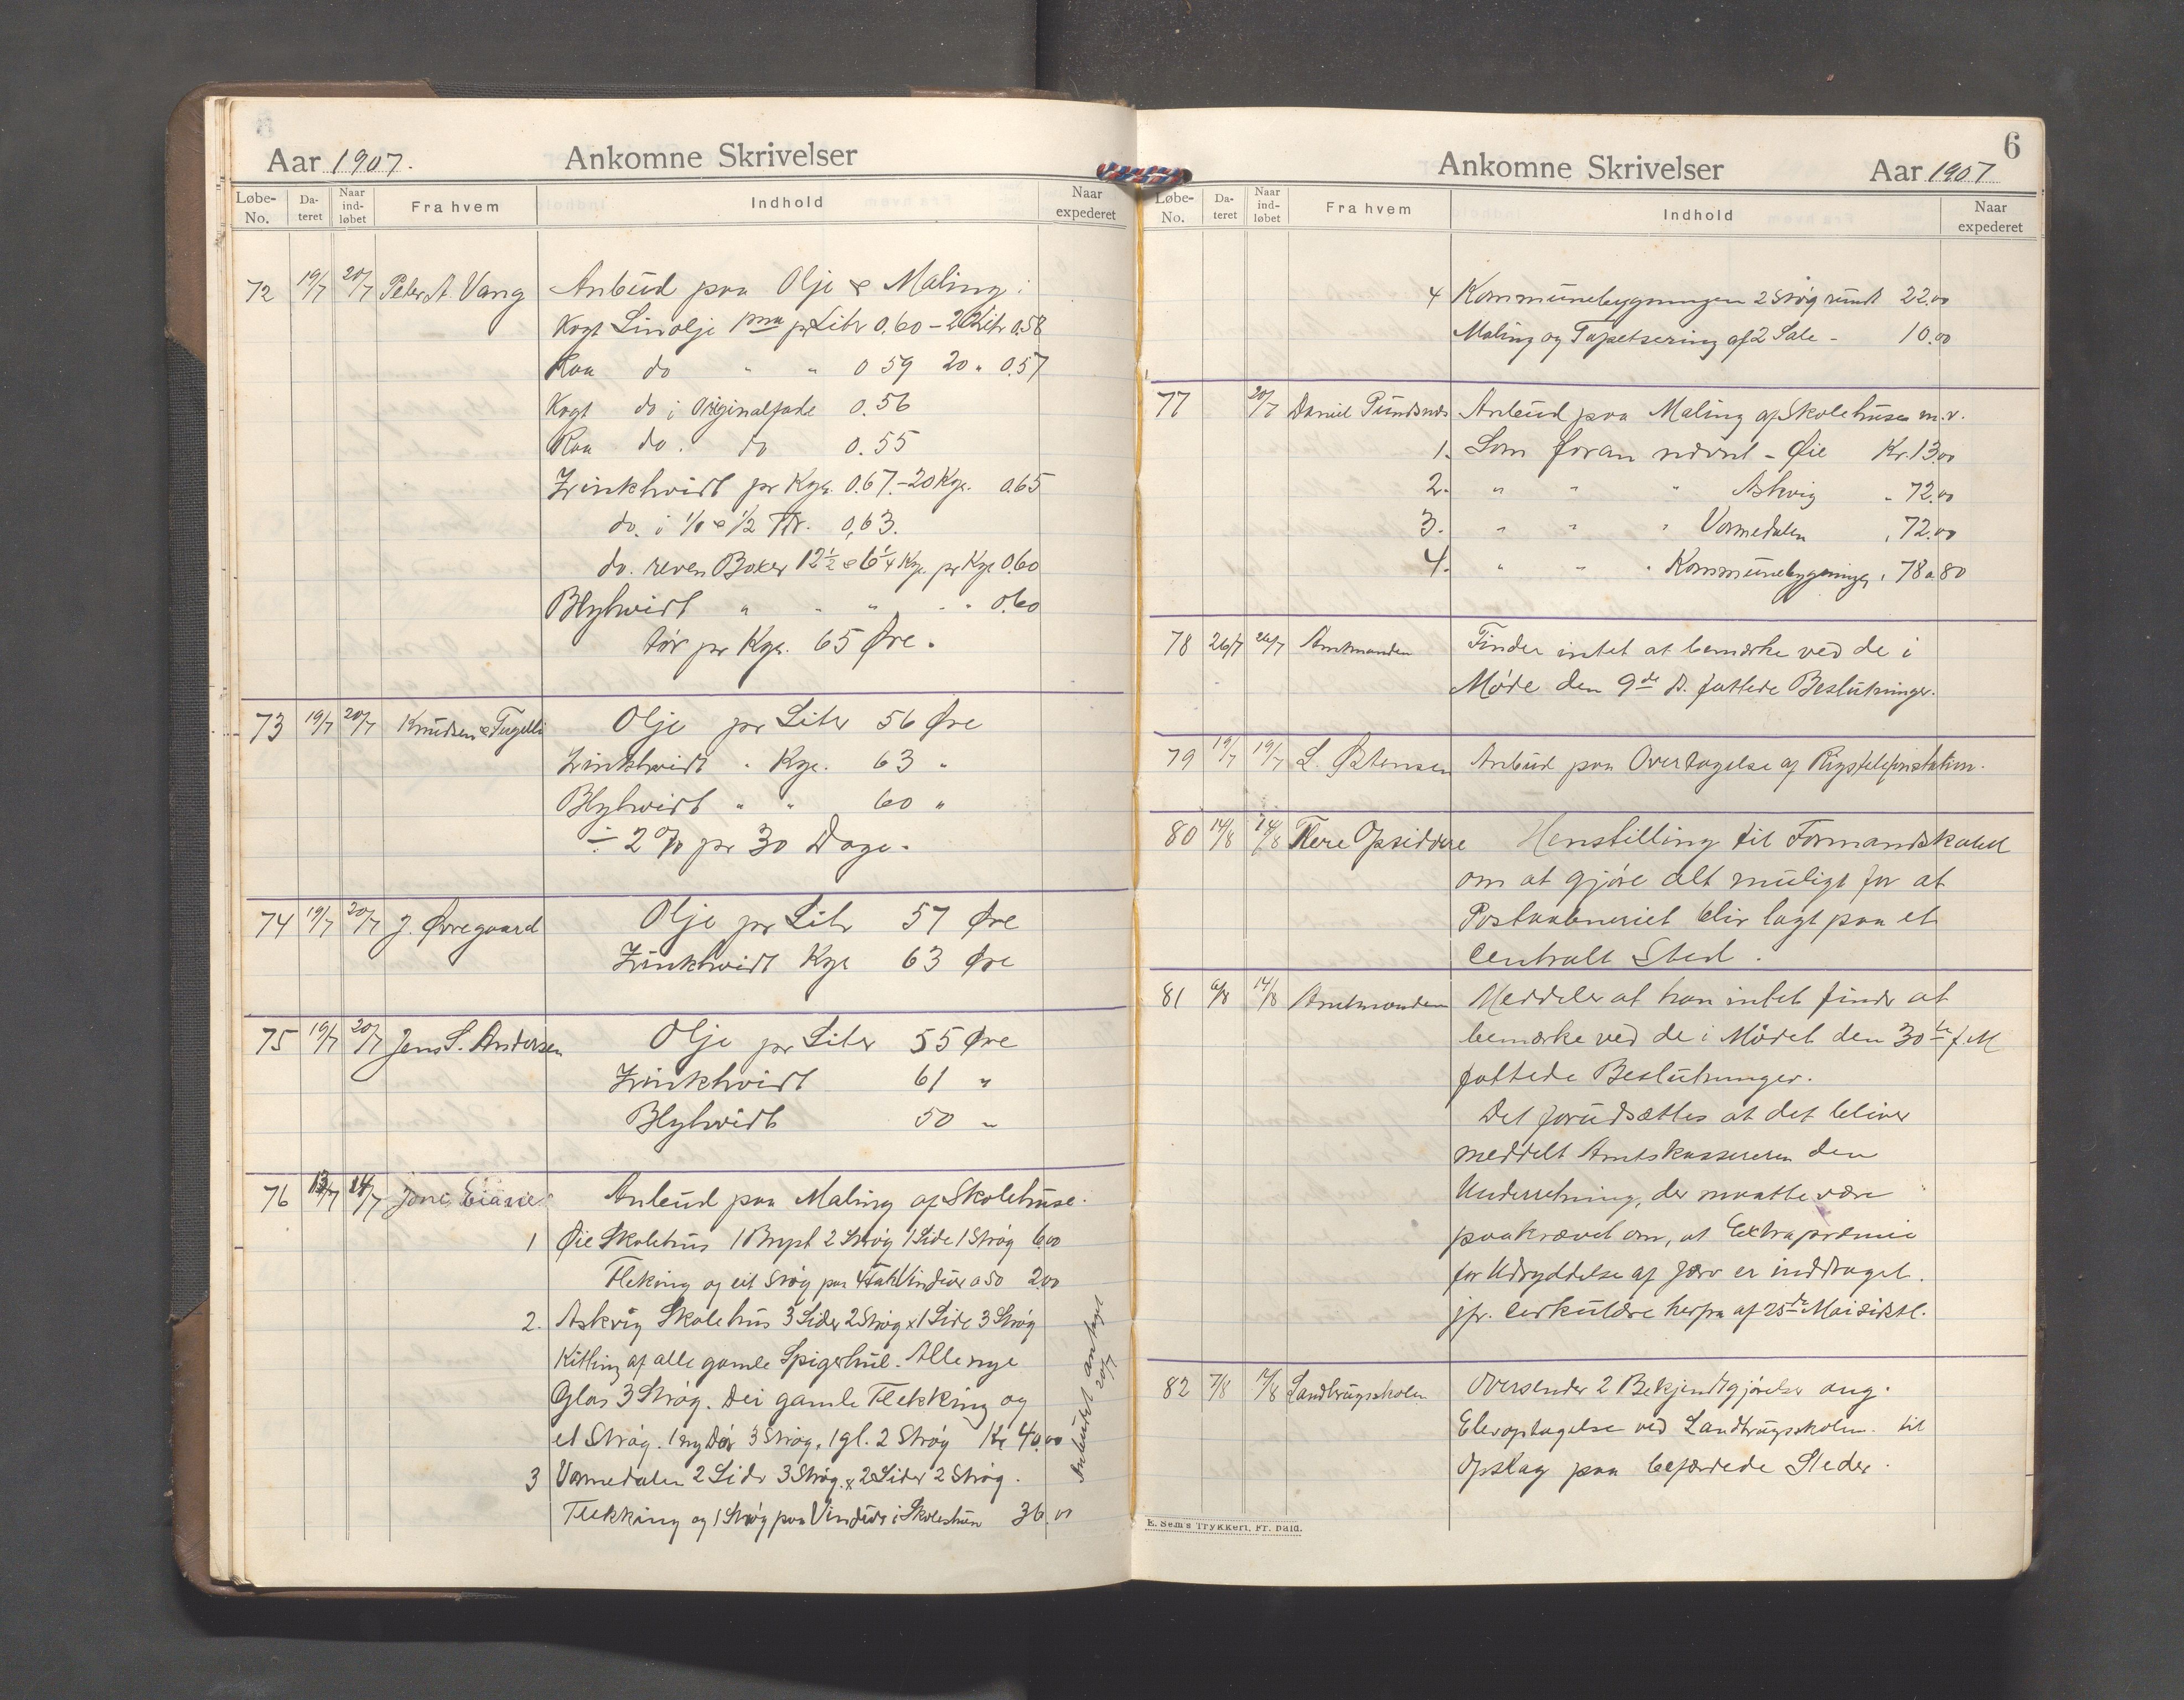 Aar 1907. Ankomne Skrivelser
Løbe-No. Da-teret Naar ind-løbet Fra hvem Indhold Naar expederet
72 19/7 20/7 Peter A Vang Anbud paa Olje & Maling:
Kogt Linolje 1ma pr Liter 0.60 - 20 Liter 0.58
Raa do " " 0 59 20 " 0.57
Kogt do i Originalfade 0.56
Raa do. do 0.55
Zinkhvidt pr Kgr. 0.67. - 20 Kgr. 0.65
do. i 1/1 & 1/2 Ttr. 0,63.
do. reven Boxer 12 1/2 & 6 1/4 Kgr. pr Kgr 0.60
Blyhvidt " " " " " 0.60
tør pr Kgr. 65 Øre.
73 19/7 20/7 Knudsen & Olje pr Liter 56 Øre
Zinkhvidt " Kgr. 63 "
Blyhvidt " " 60 "
÷ 2 % pr 30 Dage.
74 19/7 20/7 J. Øvregaard Olje pr Liter 57 Øre
Zinkhvidt Kgr 63 Øre
75 19/7 20/7 Jens S. Andersen Olje pr Liter 55 Øre
Zinkhvidt 61 "
Blyhvidt 50 "
76 13/7 14/7 Anbud paa Maling af Skolehuse.
1 Øie Skolehus 2 Strøg 1 Side 1 Strøg 6.00
Flekking og eit Strøg paa 4 Vinduer a 50 2.00
2. Askvig Skolehus 3 Sider 2 Strøg x 1 Side 3 Strøg
Kitting af alle gamle Spigerhul. Alle nye
Glas 3 Strøg. Dei gamle Flekking og
et Strøg. 1 ny Dør 3 Strøg. 1 gl. 2 Strøg Kr 40.00
3 Vormedalen 2 Sider 3 Strøg x 2 Sider 2 Strøg.
Flekking og 1 Strøg paa Vinduer i Skolestuen 36.00
Anbudet antagt
20/7
6
Ankomne Skrivelser Aar 1907
Løbe-No. Da-teret Naar ind-løbet Fra hvem Indhold Naar expederet
4 Kommunebygningen 2 Strøg rundt 22.00
Maling og Tapetsering af 2 Sale - 10.00
77 20/7 Daniel Anbud paa Maling af Skolehuse m.v.
1. Som foran nævnt - Øie Kr. 13.00
2. " " " Askvig " 72.00
3. " " " Vormedalen " 72.00
4. " " " Kommunebygningen " 78 a 80
78 26/7 26/7 Amtmanden Finder intet at bemærke ved de i
Møde den 9de ds. fattede Beslutninger.
79 19/7 19/7 L. Østensen Anbud paa Overtagelse af Rigstelefonstation.
80 14/8 14/8 Flere Opsiddere Henstilling til Formandskabet
om at gjøre alt muligt for at
Postaabneriet blir lagt paa et
centralt Sted.
81 6/8 14/8 Amtmanden Meddeler at han intet finder at
bemærke ved de i Mødet den 30te f.M
fattede Beslutninger.
Det forudsættes at det bliver
meddelt Amtskassereren den
Underretning, der maatte være
paakrævet om, at Extrapræmie
for Udryddelse af Jærv er inddraget.
jfr. Cirkulære herfra af 25de Mai sidstl.
82 7/8 14/8 Landbrugsskolen Oversender 2 Bekjendtgjørelser ang.
Elevoptagelse ved Landbrugsskolen til
Opslag paa befærdede Steder.
E. Sem's Trykkeri, Fr.hald.